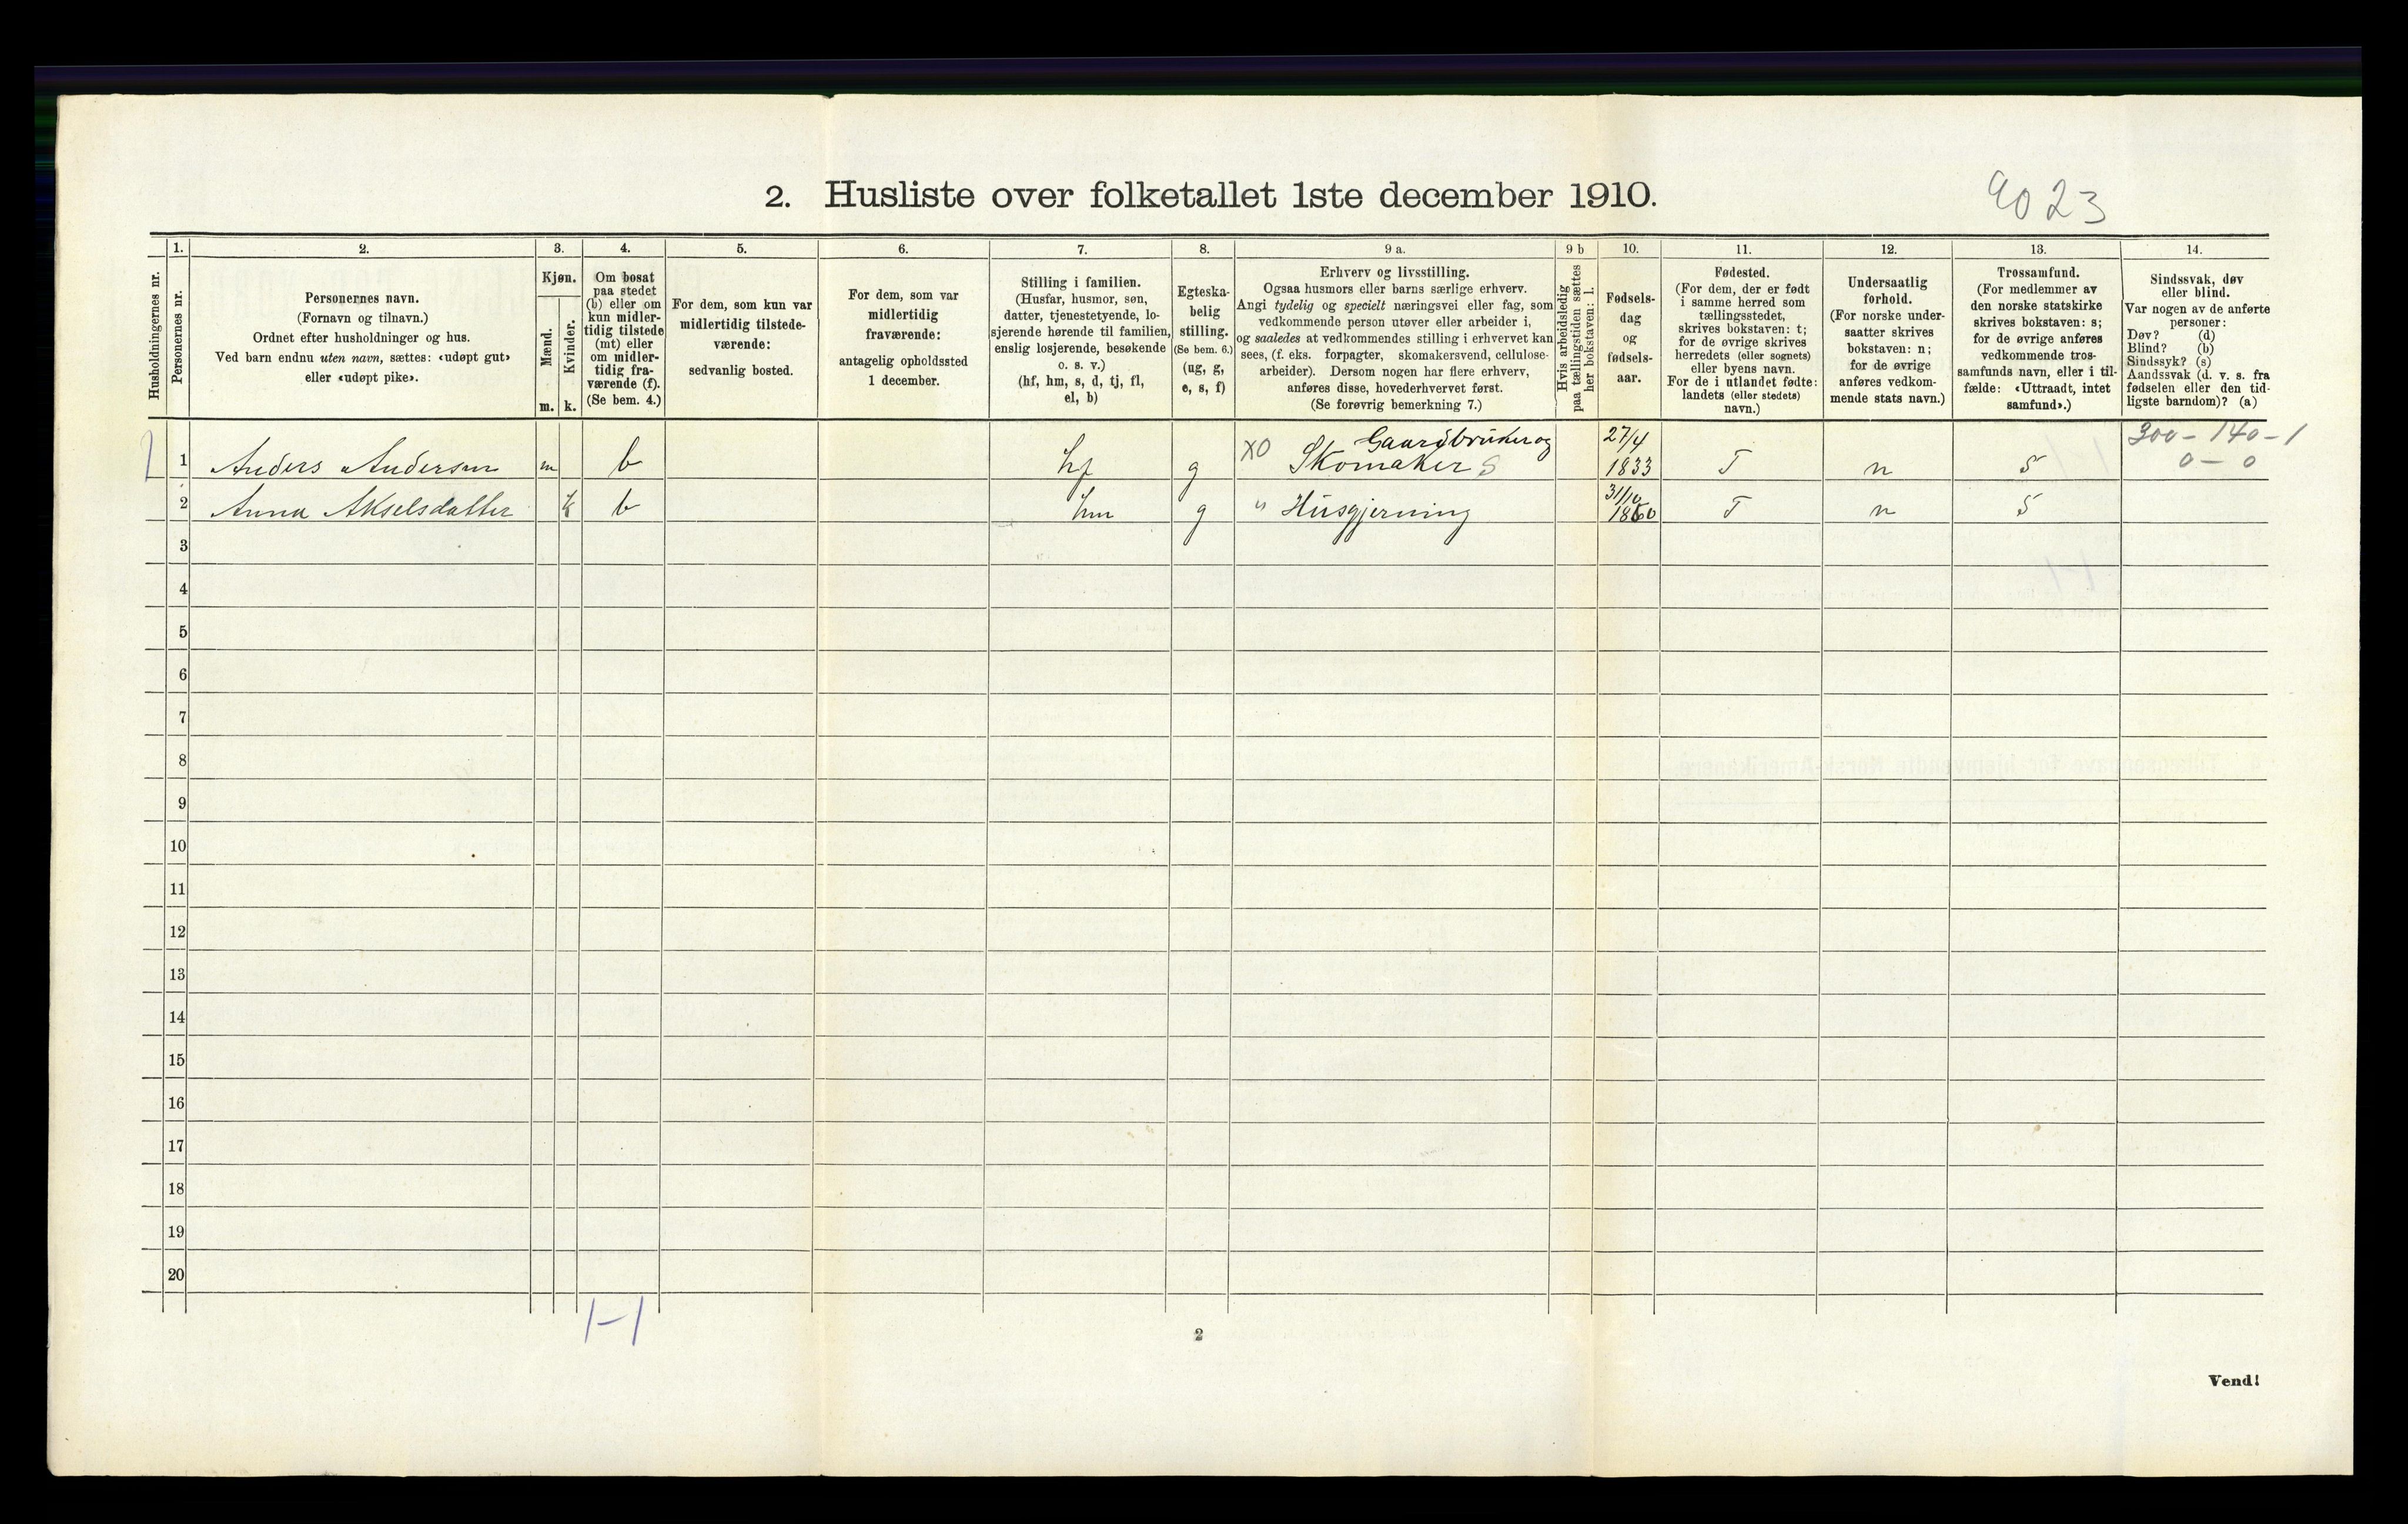 2. Husliste over folketallet 1ste december 1910.
9023
Husholdningernes nr.
1.
Personernes nr.
2.
Personernes navn.
(Fornavn og tilnavn.)
Ordnet efter husholdninger og hus.
Ved barn endnu uten navn, sættes: «udøpt gut»
eller «udøpt pike».
3.
Kjøn.
Mænd.
Kvinder.
m. k.
4.
Om bosat
paa stedet
(b) eller om
kun midler-
tidig tilstede
(mt) eller
om midler-
tidig fra-
værende (f).
(Se bem. 4.)
5.
For dem, som kun var
midlertidig tilstede-
værende:
sedvanlig bosted.
6.
For dem, som var
midlertidig
fraværende:
antagelig opholdssted
1 december.
7.
Stilling i familien.
(Husfar, husmor, søn,
datter, tjenestetyende, lo-
sjerende hørende til familien,
enslig losjerende, besøkende
o. s. v.)
(hf, hm, s, d, tj, fl,
el, b)
8.
Egteska-
belig
stilling.
(Se bem. 6.)
(ug, g,
e, s, f)
9 a.
Erhverv og livsstilling.
Ogsaa husmors eller barns særlige erhverv.
Angi tydelig og specielt næringsvei eller fag, som
vedkommende person utøver eller arbeider i,
og saaledes at vedkommendes stilling i erhvervet kan
sees, (f. eks. forpagter, skomakersvend, cellulose-
arbeider). Dersom nogen har flere erhverv,
anføres disse, hovederhvervet først.
(Se forøvrig bemerkning 7.)
9 b
Hvis arbeidsledig
paa tællingstiden sættes
her bokstaven: l.
10.
Fødsels-
dag
og
fødsels-
aar.
11.
Fødested.
(For dem, der er født
i samme herred som
tællingsstedet,
skrives bokstaven: t;
for de øvrige skrives
herredets (eller sognets)
eller byens navn.
For de i utlandet fødte:
landets (eller stedets)
navn.)
12.
Undersaatlig
forhold.
(For norske under-
saatter skrives
bokstaven: n;
for de øvrige
anføres vedkom-
mende stats navn.)
13.
Trossamfund.
(For medlemmer av
den norske statskirke
skrives bokstaven: s;
for de øvrige anføres
vedkommende tros-
samfunds navn, eller i til-
fælde: «Uttraadt, intet
samfund».)
14.
Sindssvak, døv
eller blind.
Var nogen av de anførte
personer:
Døv? (d)
Blind? (b)
Sindssyk? (s)
Aandssvak (d. v. s. fra
fødselen eller den tid-
ligste barndom)? (a)
Gaardbruker og 27/4 300 - 140 - 1
1 Anders Andersen m b hf g XO Skomaker S 1833 T n S 0 - 0
31/10
2 Anna Akselsdatter k b hm g " Husgjerning 1860 T n S
3
4
5
6
7
8
9
10
11
12
13
14
15
16
17
18
19
20
1-1
2
Vend!